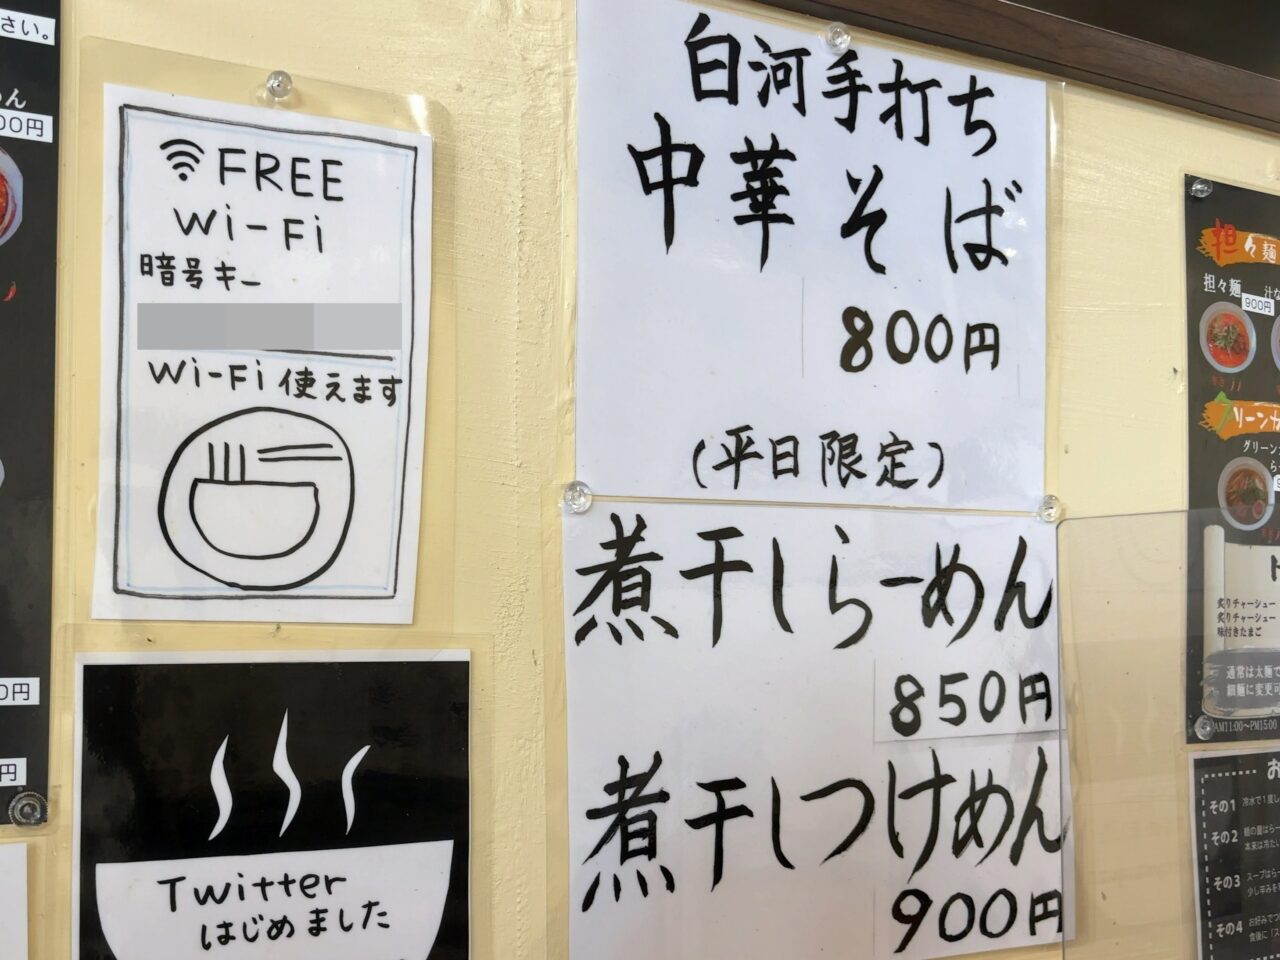 さい。
00円
0円
円
FREE
Wi-Fi
暗号キー
Wi-Fi 使えます
Twitter
はじめました
白河手打ち
中華そば
800円
(平日限定)
煮干しらーめん
850円
煮干しつけめん
900円
担々麺
担々麺
900円
グリーン
炙りチャーシュー
炙りチャーシュー
味付きたまご
通常は太麺で
細麺に変更可
AM11:00〜PM15:00
お
その1 冷水で1度し
その2
その3 スープはらー
その4 お好みでつ